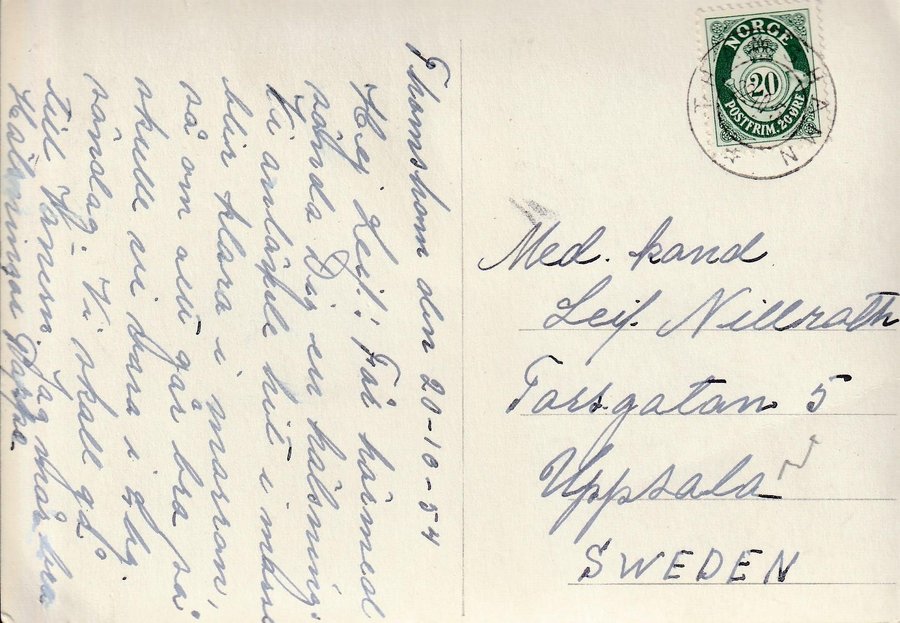 Thamshamn den 20-10-54
Hej Leif! Får härmed
sända Dig en hälsning.
Vi anlände hit i morse
blir klara i morron,
så om allt går bra så
skulle vi vara i Sbg.
söndag. Vi skall gå
till Vänern. Jag mår bra
Hälsningar Pappa.
NORGE
20
POSTFRIM. 20 ØRE
Med. kand
Leif Nillroth
Torsgatan 5
Uppsala
SWEDEN